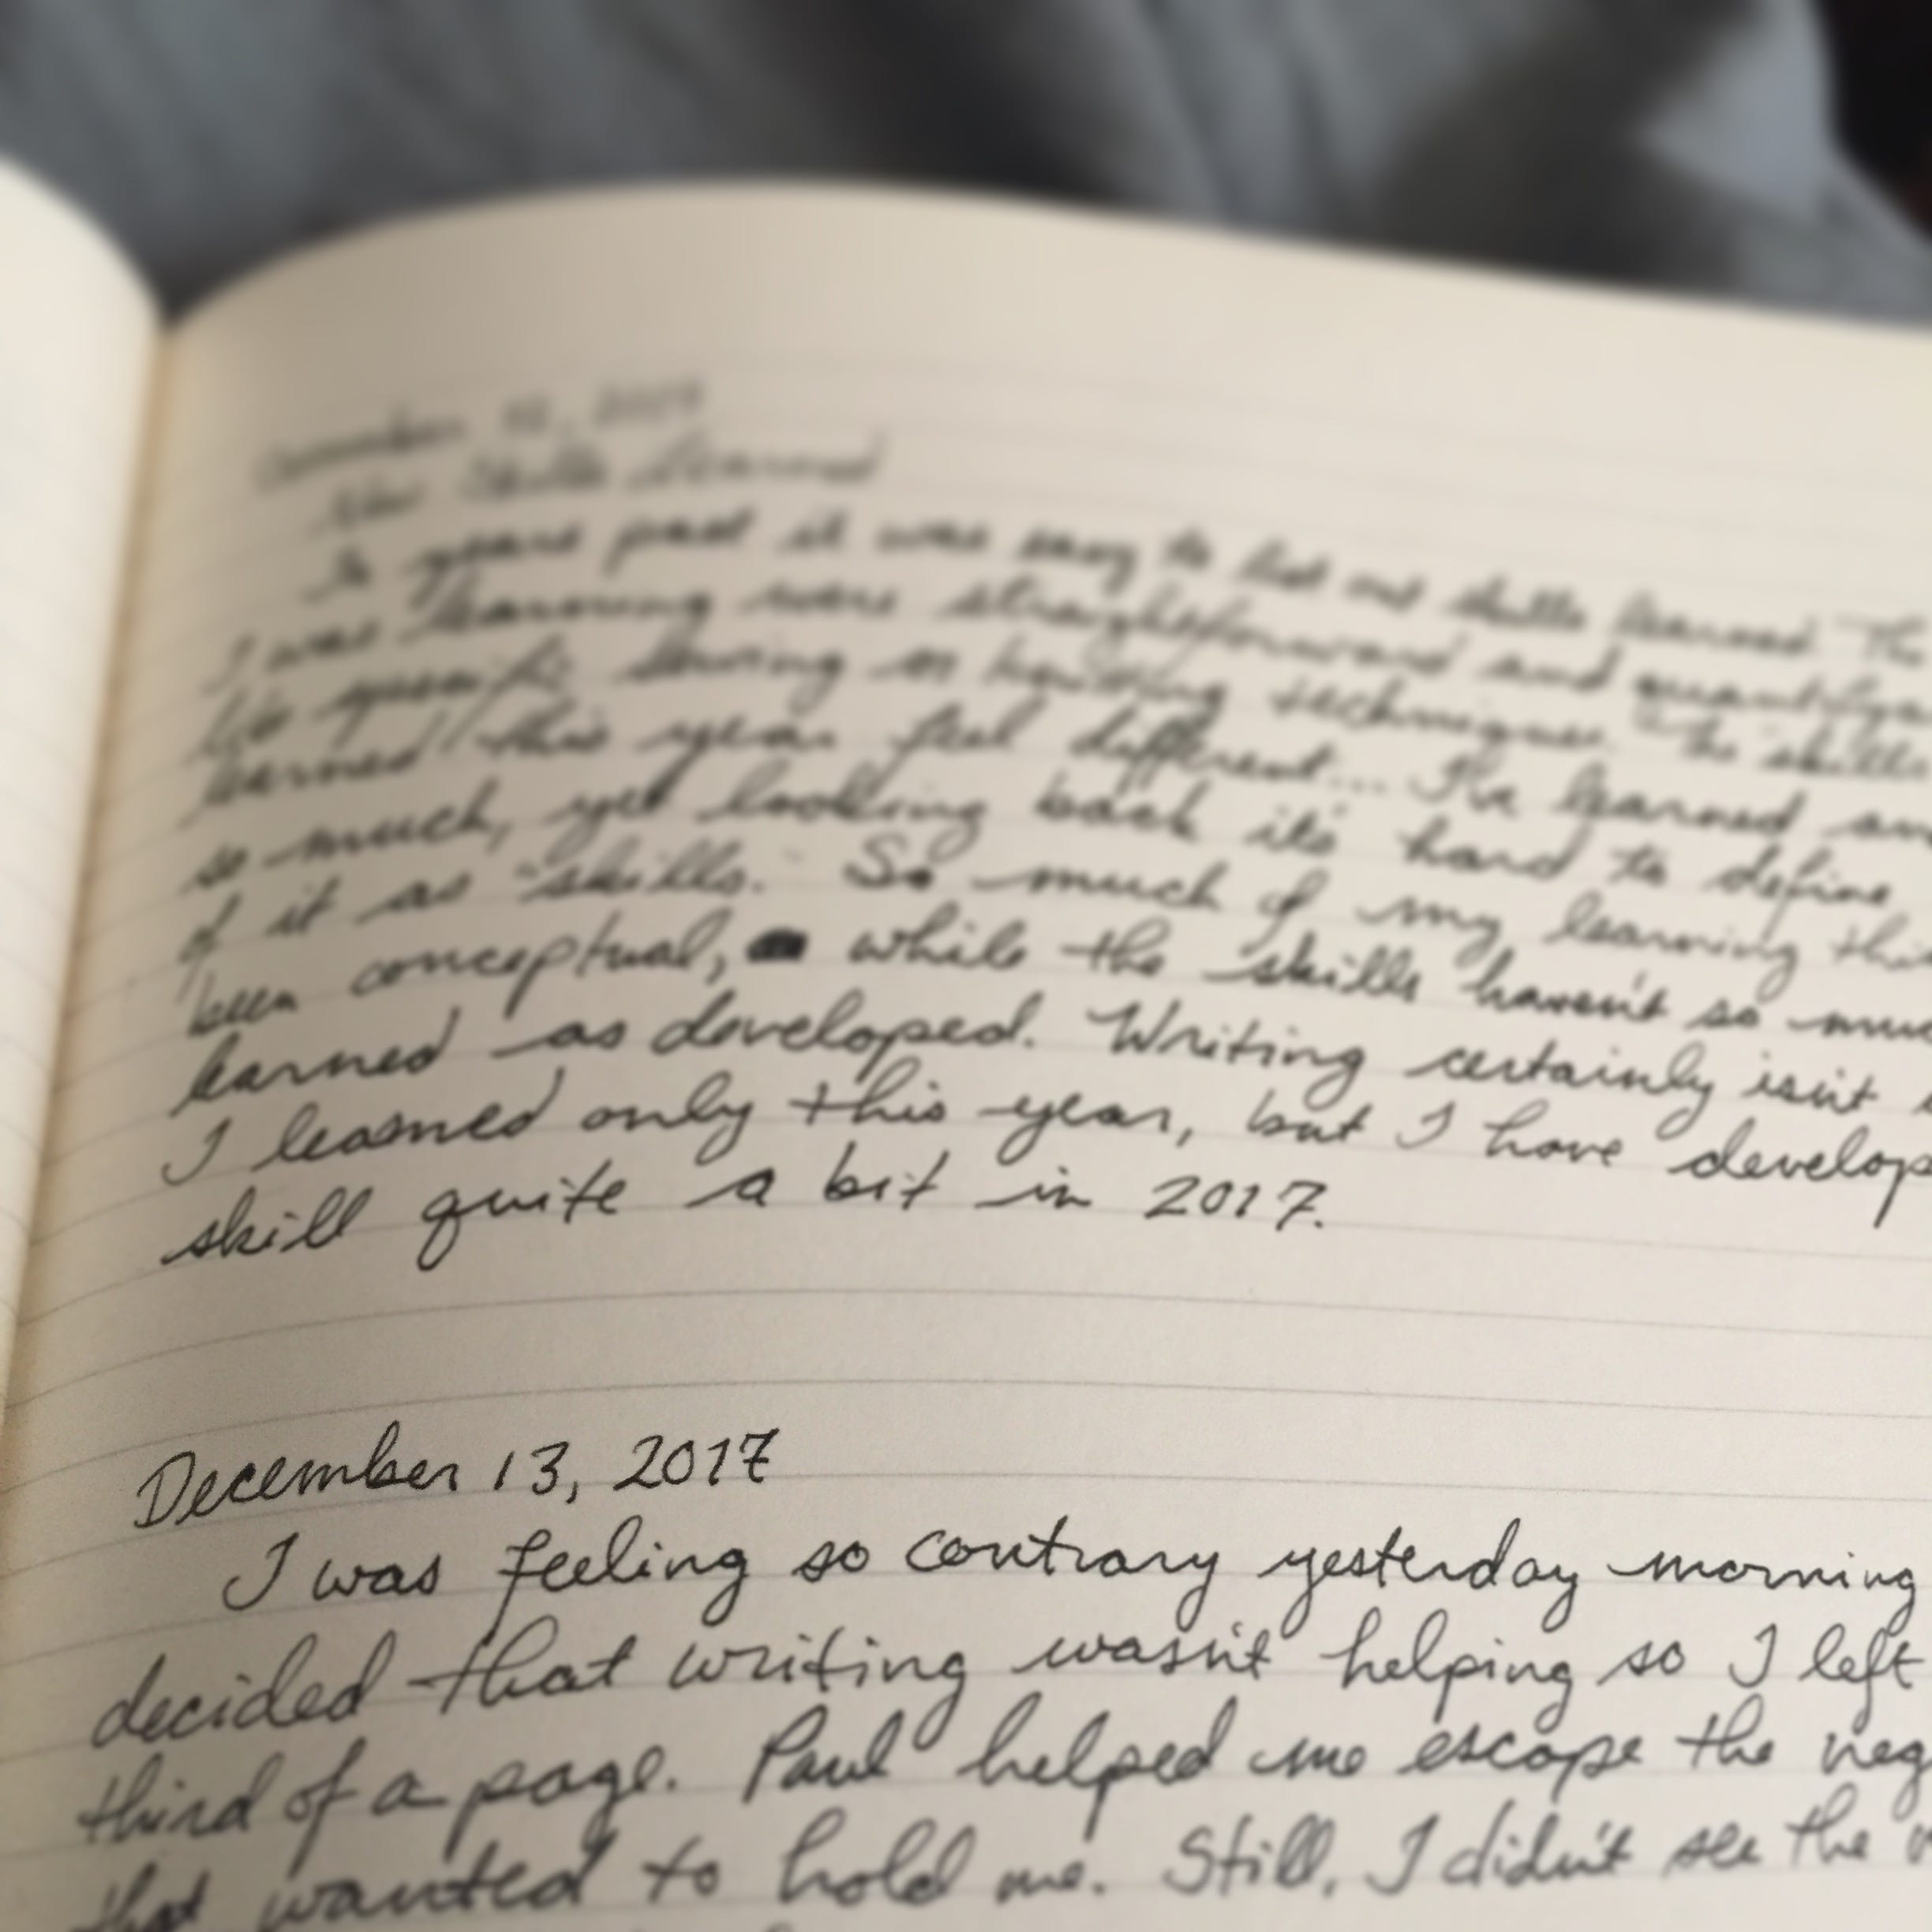 December 12, 2017
New Skills Learned
In years past it was easy to list out skills learned. The
I was learning were straightforward and
like specific sewing or knitting techniques. The skills
learned this year feel different... I've learned
so much, yet looking back it's hard to define
of it as "skills." So much of my learning this
been conceptual, while the skills haven't so much
learned as developed. Writing certainly isn't
I learned only this year, but I have develop
skill quite a bit in 2017.
December 13, 2017
I was feeling so contrary yesterday morning
decided that writing wasn't helping so I left
third of a page. Paul helped me escape the neg
that wanted to hold me. Still, I didn't see the